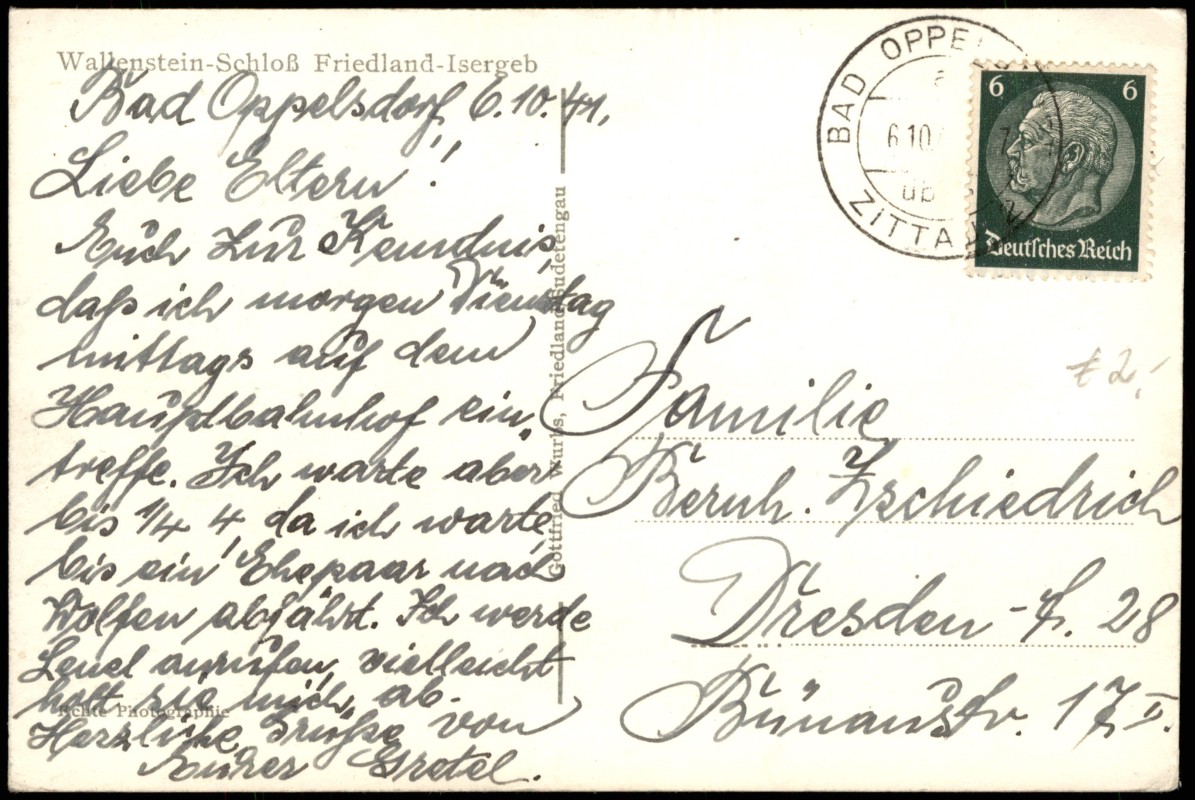 Wallenstein-Schloß Friedland-Isergeb
Bad Oppelsdorf 6.10.41.
Liebe Eltern!
Euch zur Kenndnis,
daß ich morgen Dienstag
mittags auf dem
Hauptbahnhof ein„
treffe. Ich warte aber
bis 1/4 4, da ich warte,
bis ein Ehepaar nach
Wolfen abfährt. Ich werde
Lenel anrufen, vielleicht
holt sie mich ab.
Echte Photographie
Herzliche Grüße von
Eurer Gretel.
Gottfried Wurbs, Friedland-Sudetengau
BAD OPPEL
6.10.
üb
ZITTAU
6 6
Deutsches Reich
€ 2,-
Familie
Bernh. Zschiedrich
Dresden -A. 28
Bünaustr. 17 I.